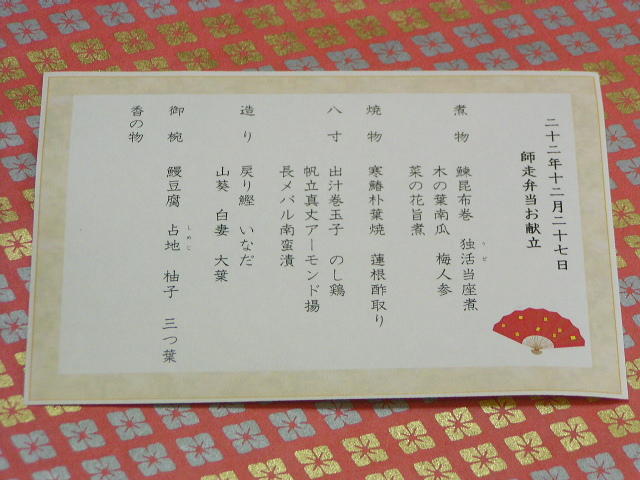 二十二年十二月二十七日
師走弁当お献立
煮物 鰊昆布巻 独活当座煮
うど
木の葉南瓜 梅人参
菜の花旨煮
焼物 寒鰆朴葉焼 蓮根酢取り
八寸 出汁巻玉子 のし鶏
帆立真丈アーモンド揚
長メバル南蛮漬
造り 戻り鰹 いなだ
山葵 白妻 大葉
御椀 鰻豆腐 占地 柚子 三つ葉
しめじ
香の物